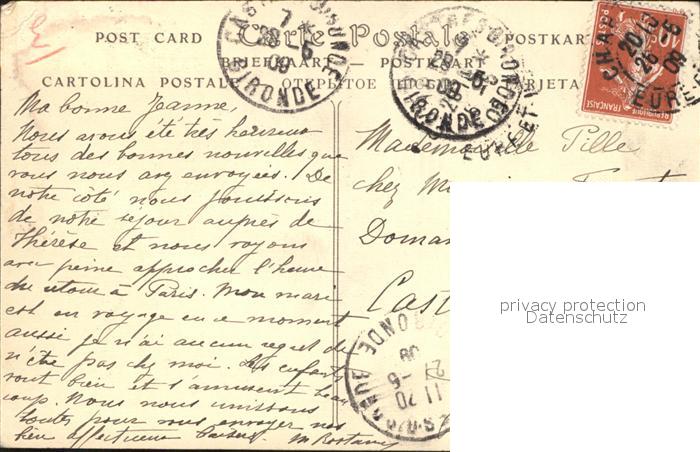 POST CARD Carte Postale POSTKARTE
BRIEFKAART - POSTKARTE
CARTOLINA POSTALE ОТКРЫТОЕ TARJETA
GIRONDE
GIRONDE
CHAP
20
26 -5
09
EURE
10
REPUBLIQUE FRANÇAISE
Ma bonne Jeanne,
Nous avons été très heureux
tous des bonnes nouvelles que
vous nous avez envoyées. De
notre côté nous jouissons
de notre séjour auprès de
Thérèse et nous voyons
avec peine approcher l'heure
du retour à Paris. Mon mari
est en voyage en ce moment
aussi je n'ai aucun regret de
n'être pas chez moi. Les enfants
vont bien et s'amusent beau
coup. Nous nous unissons
toutes pour vous envoyer nos
bien affectueux baisers.
Mademoiselle Pille
chez
Doma
Cast
GIRONDE
privacy protection
Datenschutz